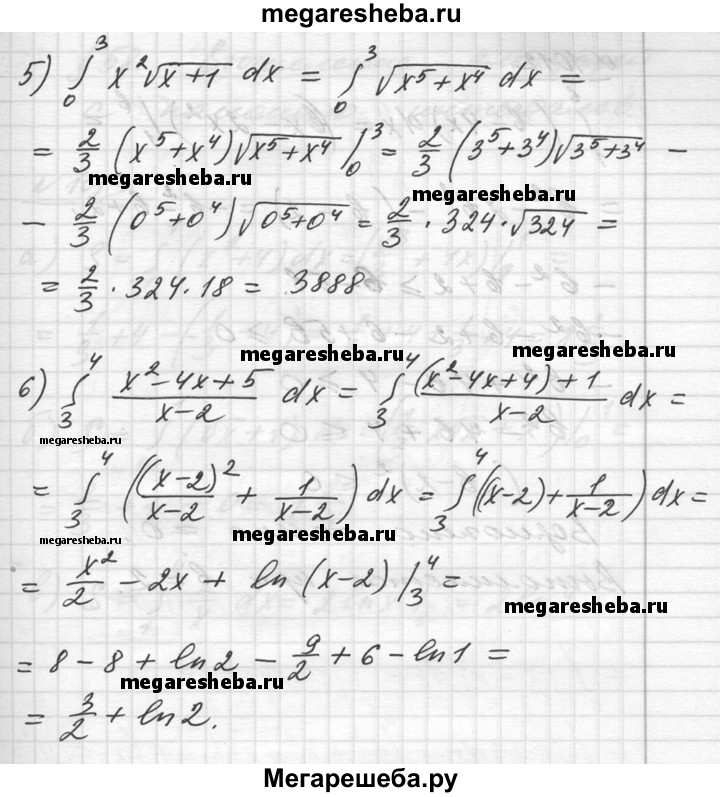 megaresheba.ru
5) ∫₀³ x²√(x+1) dx = ∫₀³ √(x⁵+x⁴) dx =
= 2/3 (x⁵+x⁴)√(x⁵+x⁴) |₀³ = 2/3 (3⁵+3⁴)√(3⁵+3⁴) −
megaresheba.ru megaresheba.ru
− 2/3 (0⁵+0⁴)√(0⁵+0⁴) = 2/3 · 324 · √324 =
= 2/3 · 324 · 18 = 3888
megaresheba.ru megaresheba.ru
6) ∫₃⁴ (x²−4x+5)/(x−2) dx = ∫₃⁴ ((x²−4x+4)+1)/(x−2) dx =
megaresheba.ru
= ∫₃⁴ ((x−2)²/(x−2) + 1/(x−2)) dx = ∫₃⁴ ((x−2)+1/(x−2)) dx =
megaresheba.ru megaresheba.ru
= x²/2 − 2x + ln(x−2) |₃⁴ =
megaresheba.ru
= 8 − 8 + ln2 − 9/2 + 6 − ln1 =
megaresheba.ru
= 3/2 + ln2.
Мегарешеба.ру